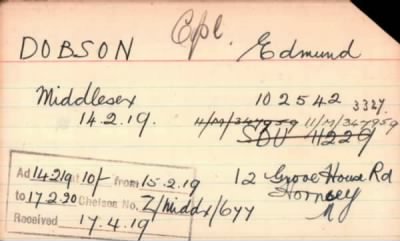 Cpl.
DOBSON Edmund
Middlesex 102542 3327.
14.2.19. 11/M/347959 11/M/347959
SDU 4229
Ad 14219 at 10/- from 15.2.19 12 Grove House Rd
to 17.2.20 Chelsea No. Z/Middx/677 Hornsey
Received 17.4.19 N